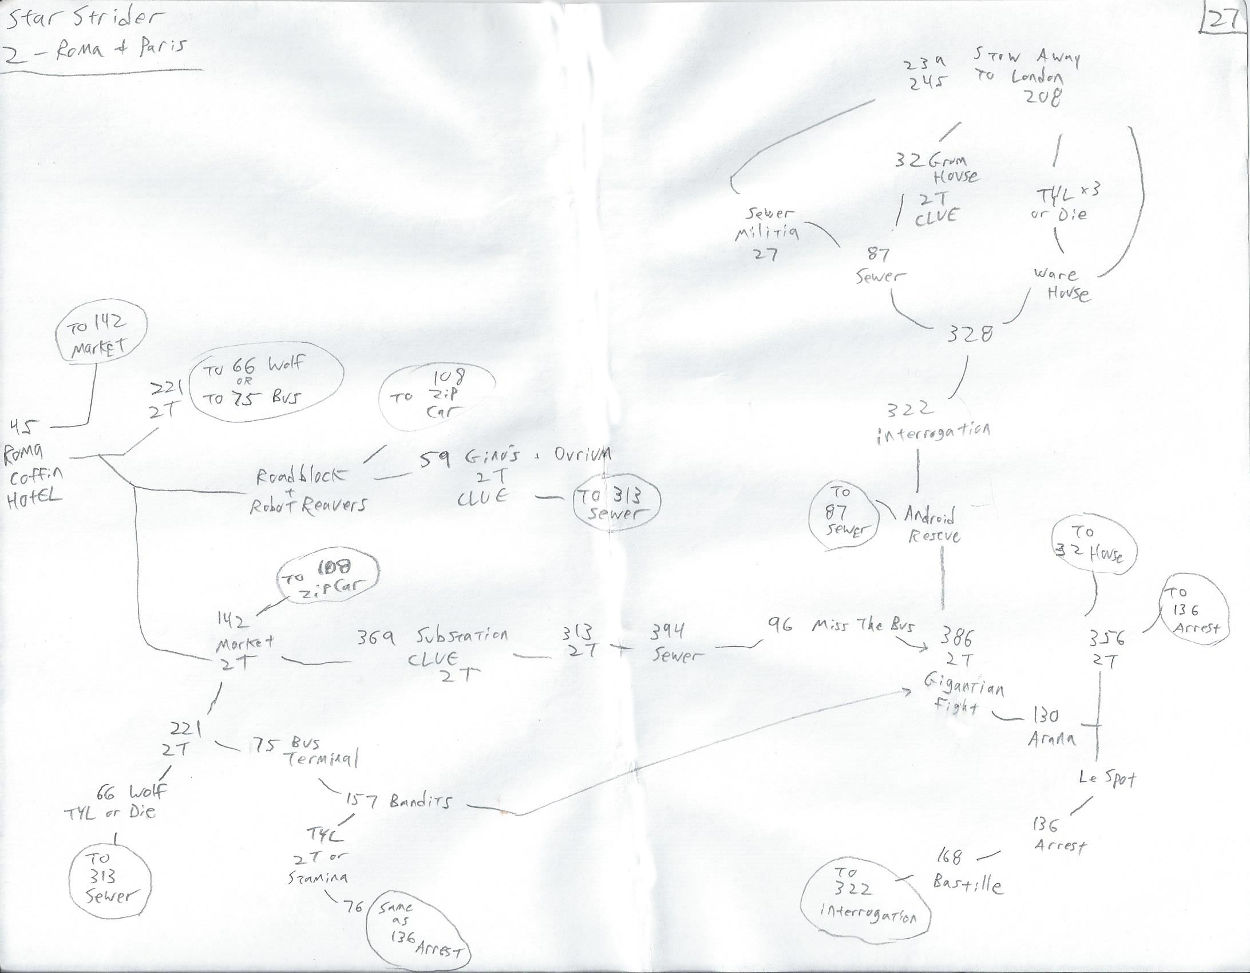 Star Strider
2 - Roma & Paris
27
239
245
Stow Away
To London
208
32 Grum
House
2T
CLUE
TYL x3
or Die
Sewer
Militia
27
87
Sewer
Ware
House
328
To 142
Market
221
2T
To 66 Wolf
OR
To 75 Bus
108
To Zip
Car
322
interrogation
45
Roma
Coffin
HOTEL
Roadblock
+
Robot Reavers
59 Gino's
2T
CLUE
To 313
Sewer
To
87
Sewer
Android
Rescue
To
32 House
To
136
Arrest
To 108
Zip Car
142
Market
2T
369 Substation
CLUE
2T
313
2T
394
Sewer
96 Miss The Bus
386
2T
Gigantian
Fight
356
2T
130
Arana
221
2T
75 Bus
Terminal
Le Spot
66 Wolf
TYL or Die
157 Bandits
136
Arrest
TYL
2T or
Stamina
To
313
Sewer
168
Bastille
To
322
interrogation
76
Same
as
136
Arrest